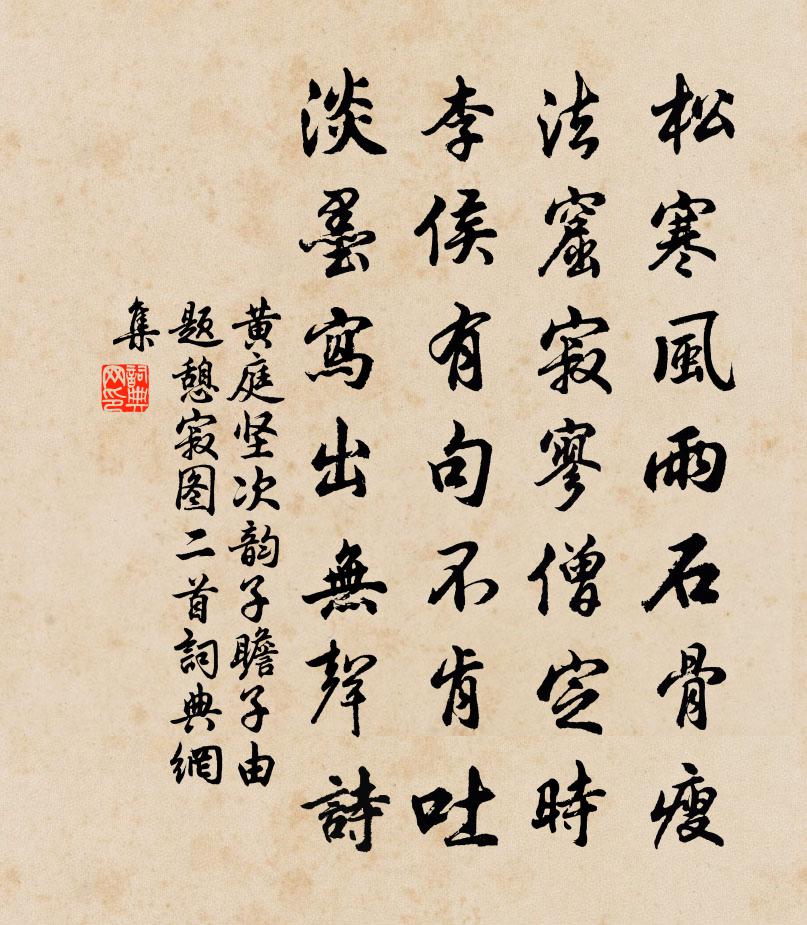 松寒風雨石骨瘦
法窟寂寥僧定時
李侯有句不肯吐
淡墨寫出無聲詩
黄庭坚次韵子瞻子由
题憩寂图二首詞典網
集
詞典
网印